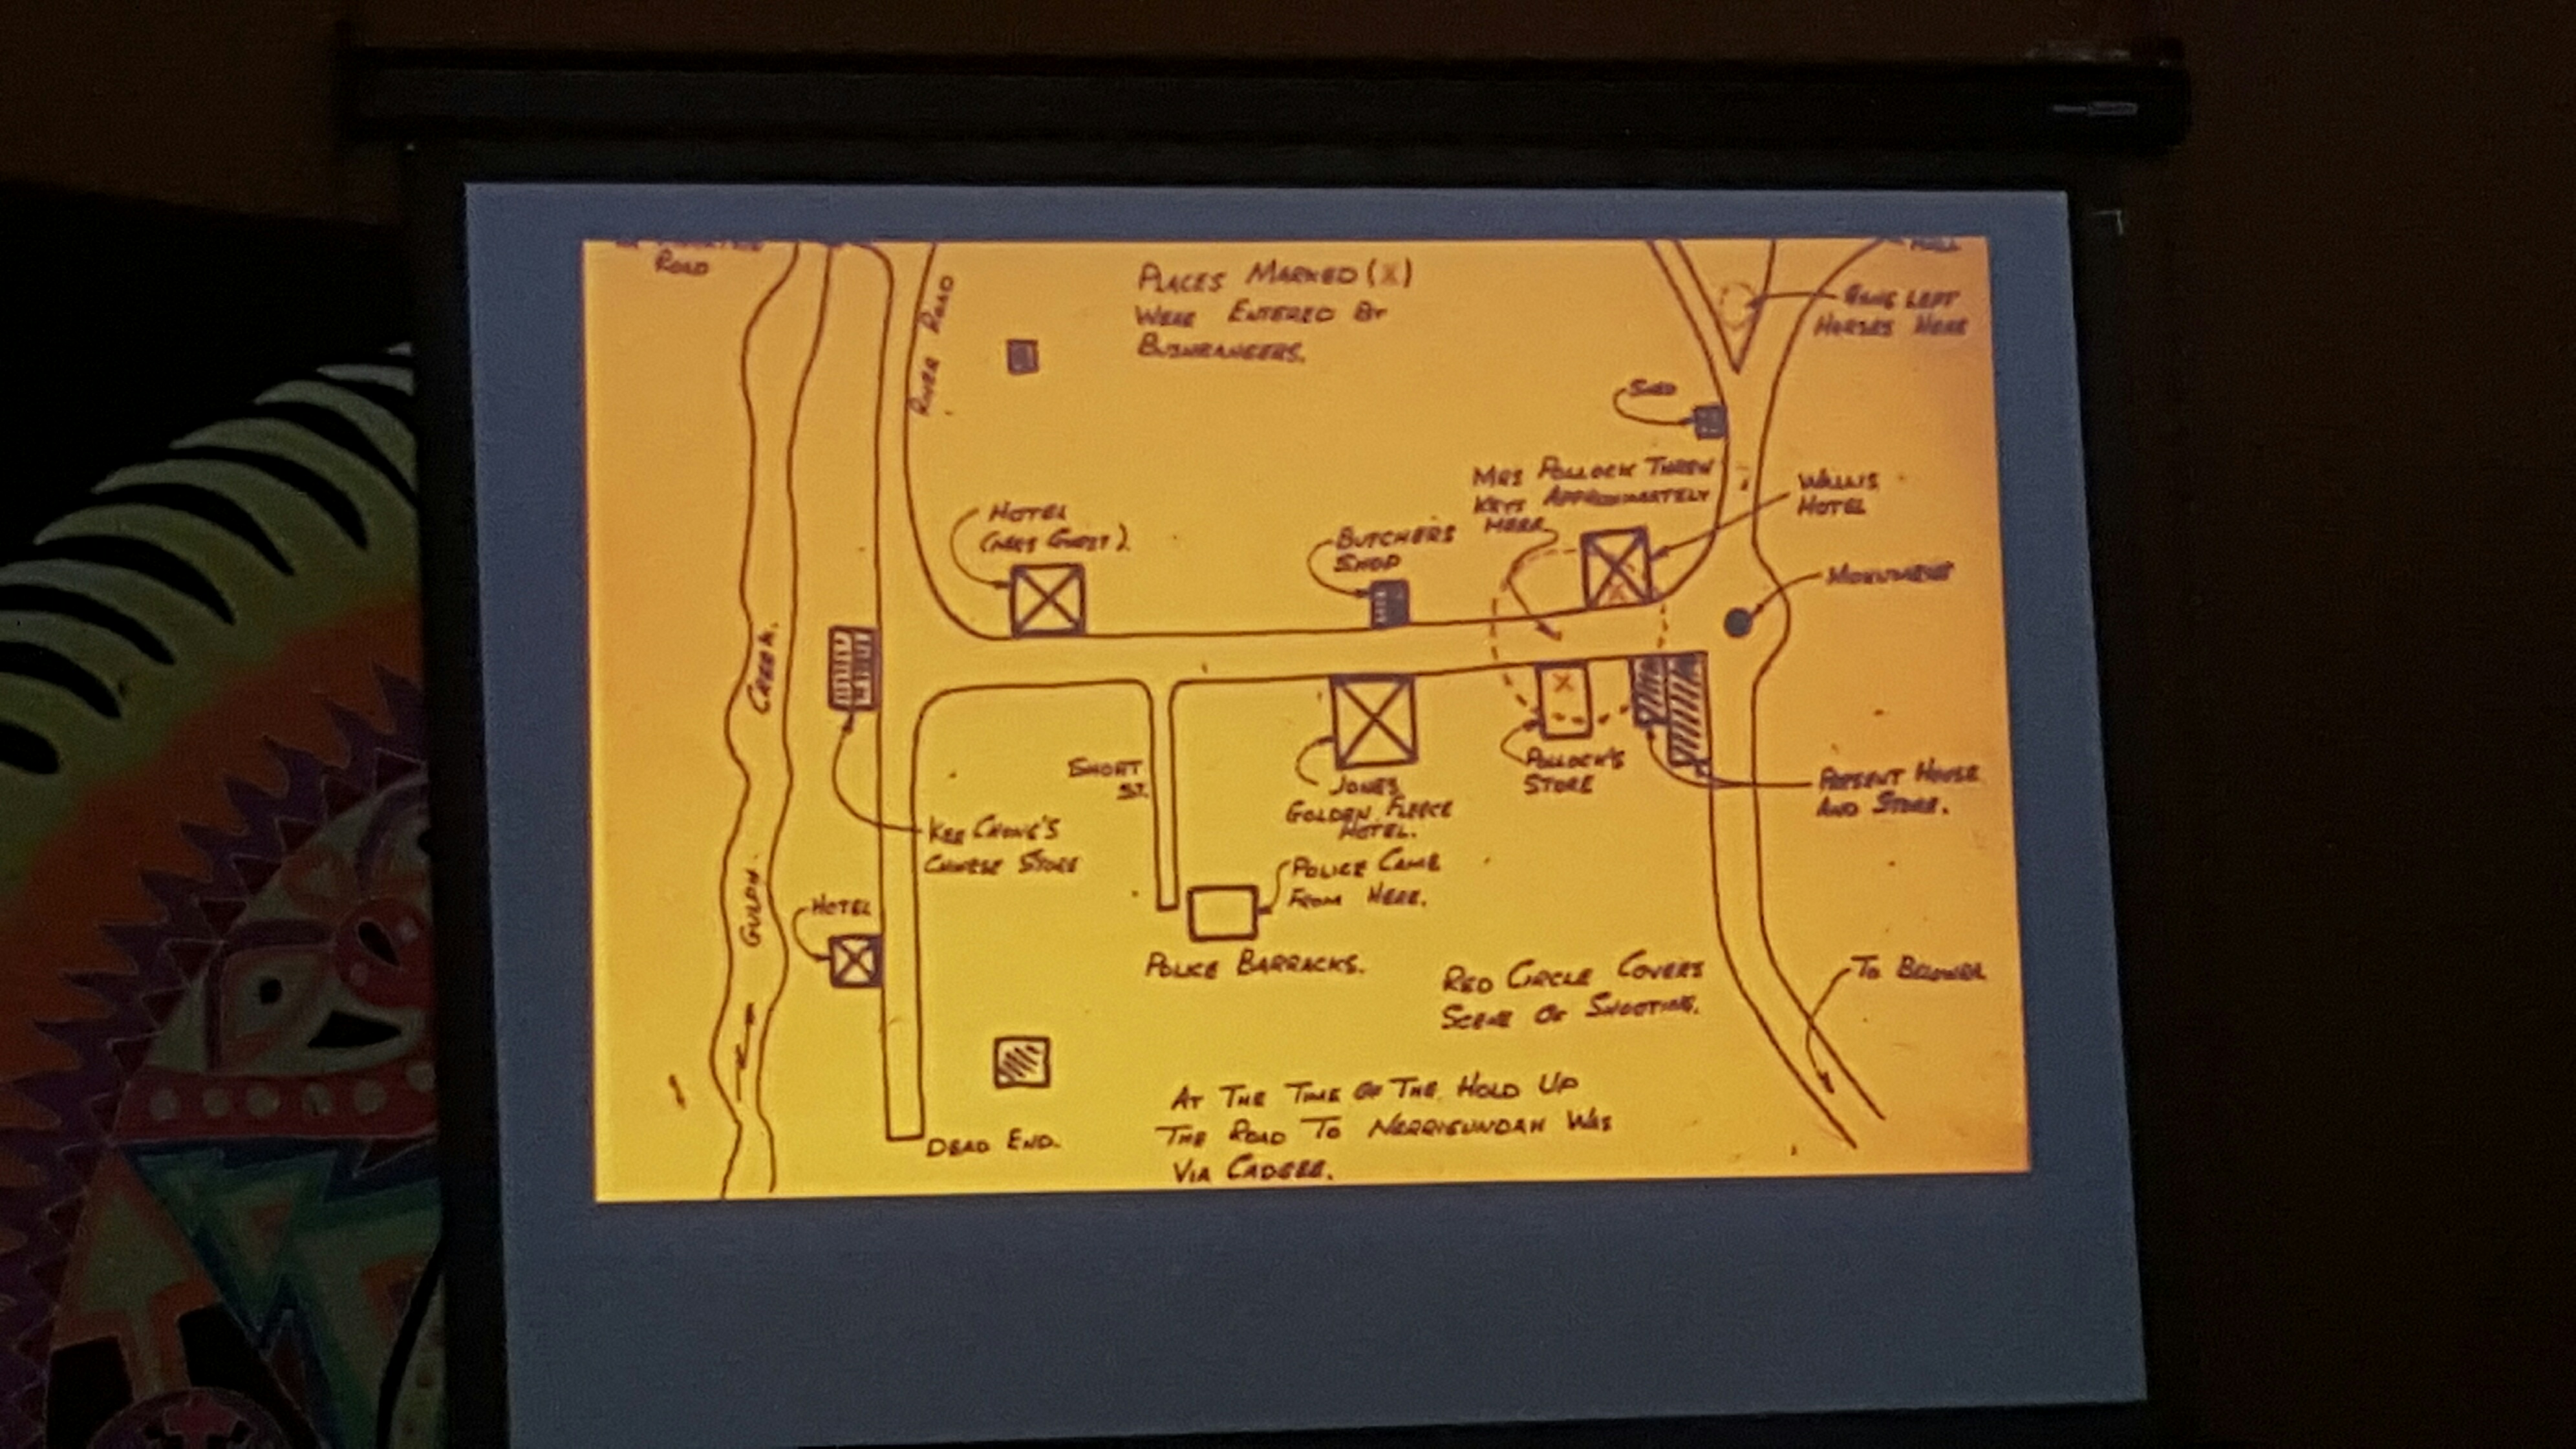 ROAD
RIVER ROAD
PLACES MARKED (X)
WERE ENTERED BY
BUSHRANGERS.
GANG LEFT
HORSES HERE
SHED
MRS POLLOCK THREW
KEYS APPROXIMATELY
HERE
WALLIS
HOTEL
HOTEL
(MRS GUEST).
BUTCHERS
SHOP
MONUMENT
CREEK.
GULPH.
SHORT
ST.
JONES
GOLDEN FLEECE
HOTEL.
POLLOCK'S
STORE
PRESENT HOUSE
AND STORE.
KEE CHONG'S
CHINESE STORE
HOTEL
POLICE CAME
FROM HERE.
POLICE BARRACKS.
RED CIRCLE COVERS
SCENE OF SHOOTING.
TO BELOWRA
DEAD END.
AT THE TIME OF THE HOLD UP
THE ROAD TO NERRIGUNDAH WAS
VIA CADGEE.